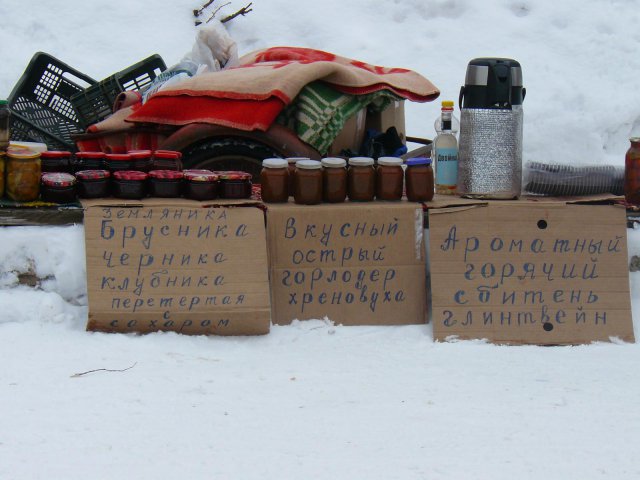 Земляника
Брусника
черника
клубника
перетертая
с
сахаром
Вкусный
острый
горлодер
хреновуха
Ароматный
горячий
сбитень
глинтвейн